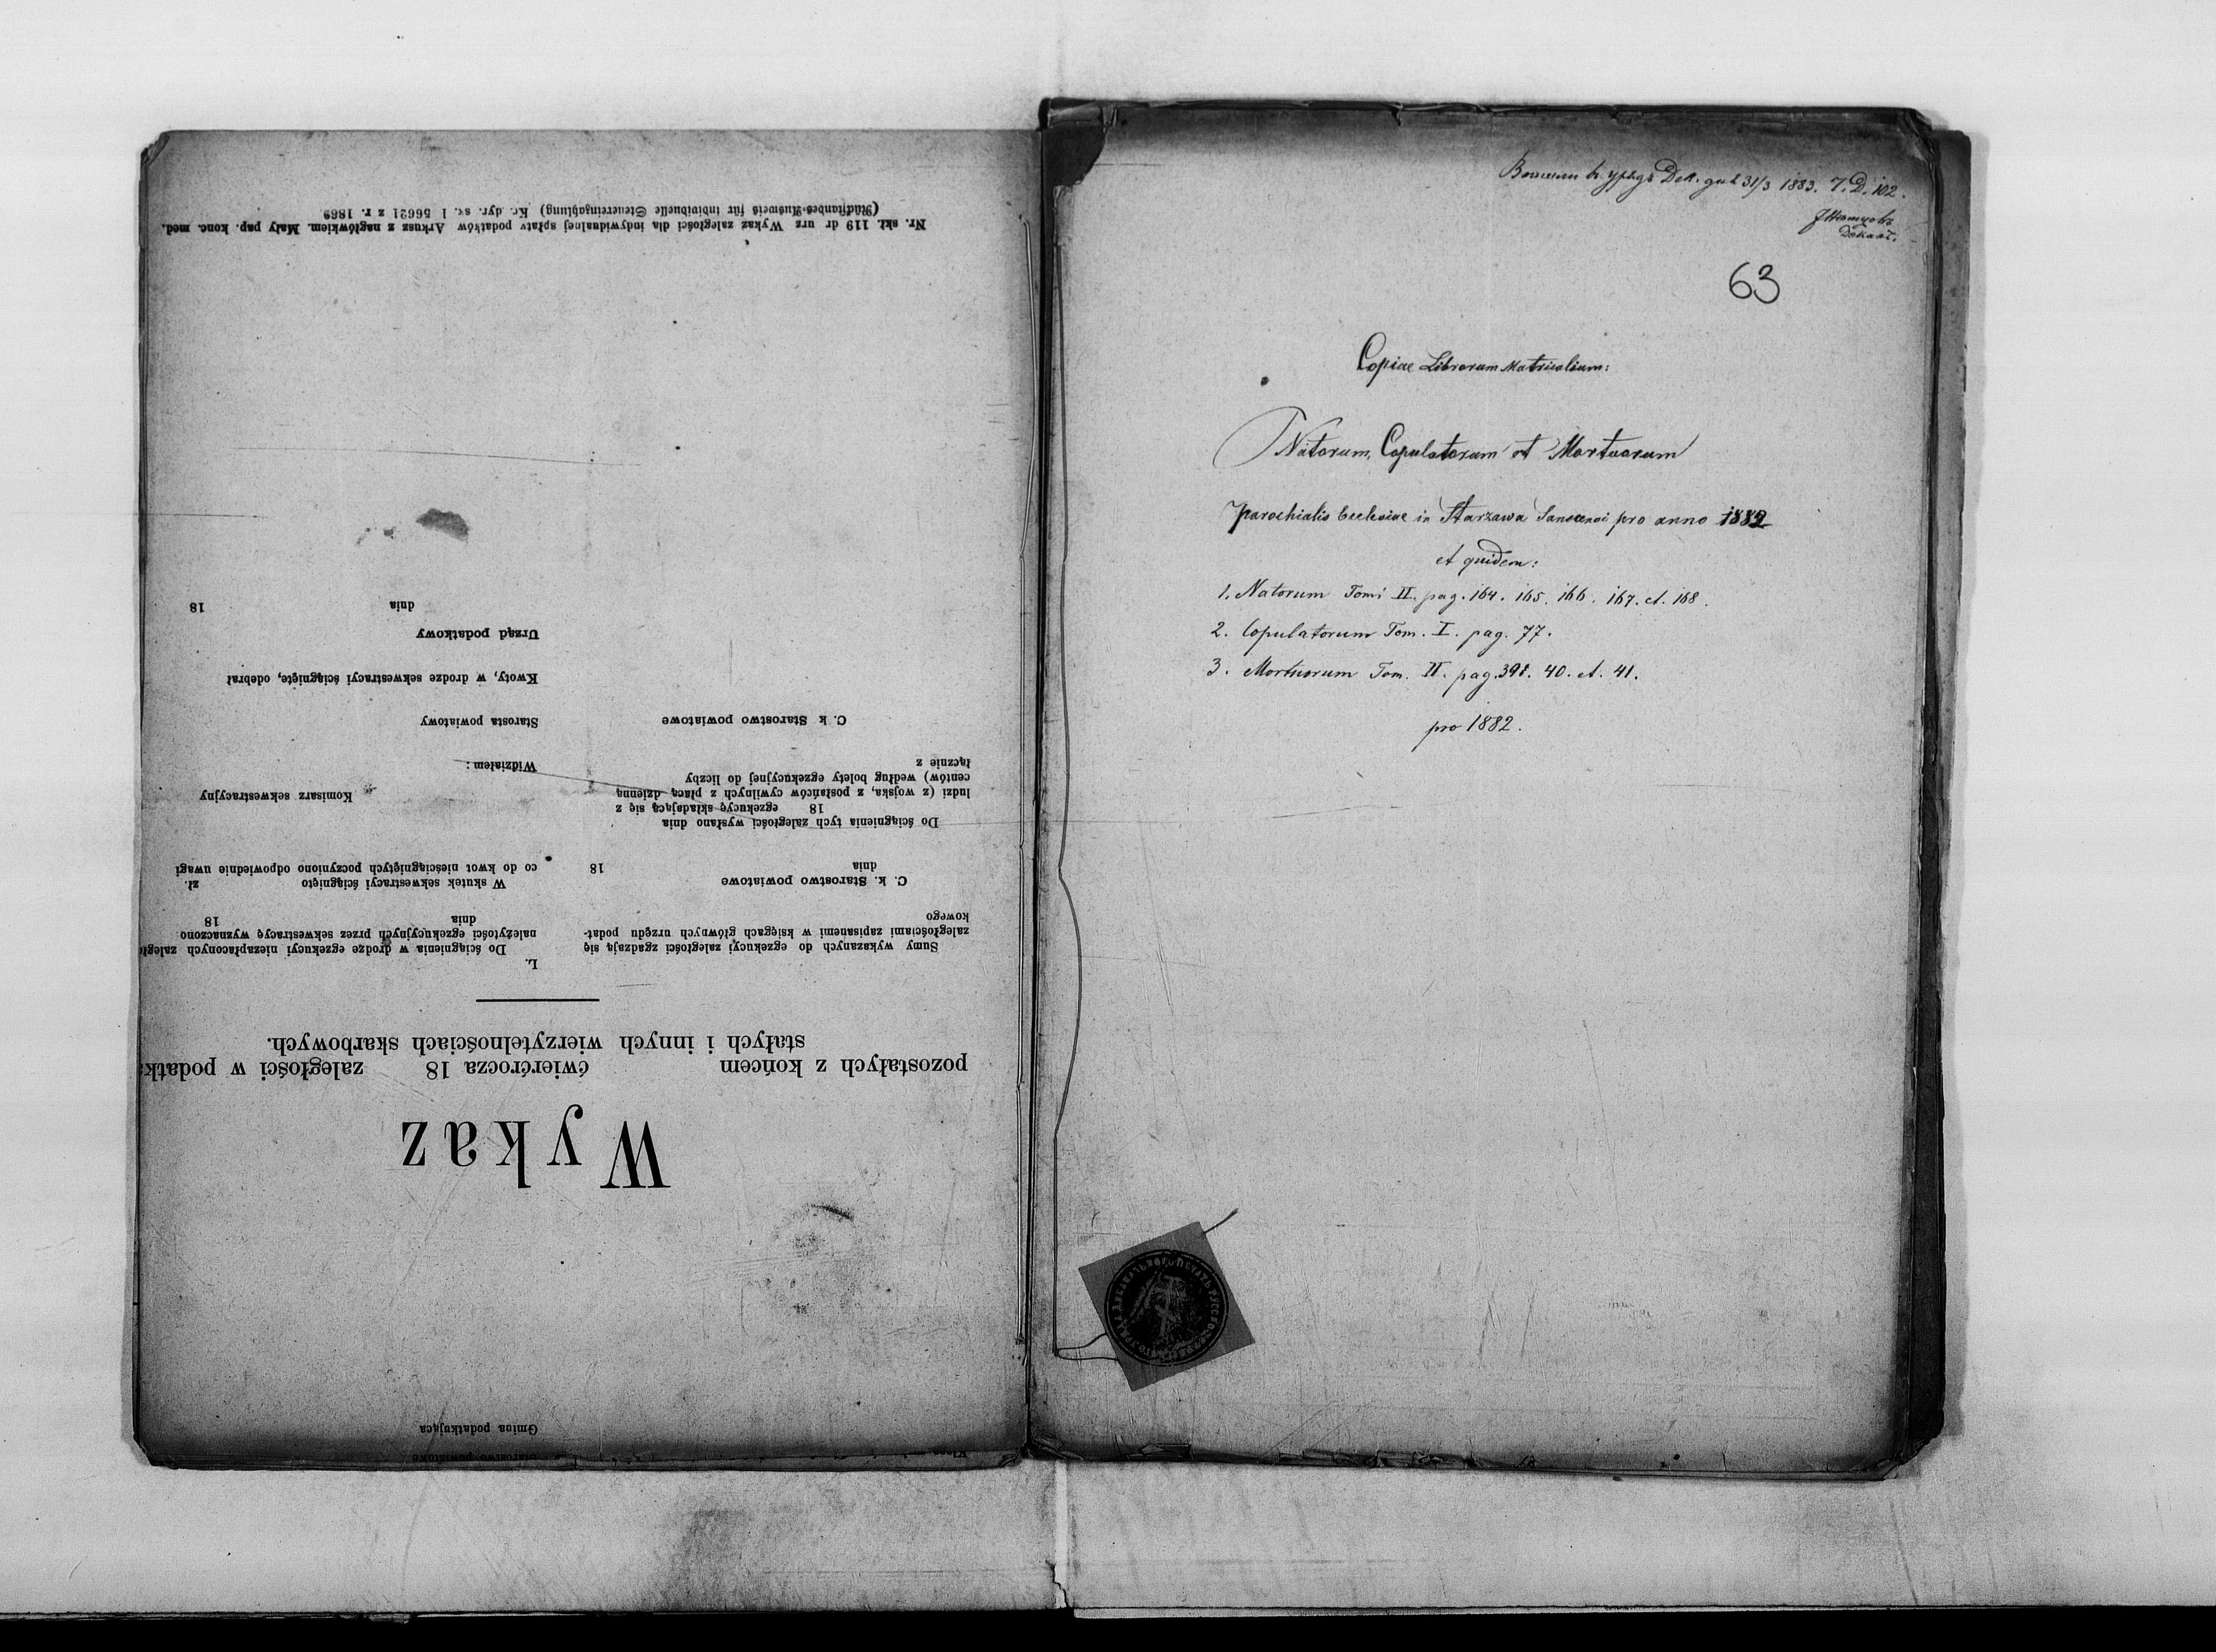 Starostwo powiatowe
Gmina podatkująca
Wykaz
pozostałych z końcem ćwierćrocza 18 zaległości w podatka
stałych i innych wierzytelnościach skarbowych.
Sumy wykazanych do egzekucyi zaległości zgadzają się
zaległościami zapisanemi w księgach głównych urzędu podat-
kowego
C. k. Starostwo powiatowe
dnia 18
Do ściągnienia tych zaległości wysłano dnia
18 egzekucyę składającą się z
ludzi (z wojska, z posłańców cywilnych z płacą dzienną
centów) według bolety egzekucyjnej do liczby
łącznie z
C. k Starostwo powiatowe
L.
Do ściągnienia w drodze egzekucyi niezapłaconych zaległ
należytości egzekucyjnych przez sekwestracyę wyznaczono
dnia 18
W skutek sekwestracyi ściągnięto zł.
co do kwot nieściągniętych poczyniono odpowiednie uwagi
Komisarz sekwestracyjny
Widziałem:
Starosta powiatowy
Kwoty, w drodze sekwestracyi ściągnięte, odebrał
Urząd podatkowy
dnia 18
Nr. skł. 119 dr urz Wykaz zaległości dla indywidualnej spłaty podatków Arkusz z nagłówkiem. Mały pap. konc. med.
(Rückstandes-Ausweis für individuelle Steuereinzahlung) Kr. dyr. sk. l 56621 z r. 1869
31/3 1883. 7. D. 102.
Декан.
63
Copiae Librorum Matricalium:
Natorum, Copulatorum et Mortuorum
Parochialis Ecclesiae in Starzawa Sanocensi pro anno 1882
et quidem:
1. Natorum Tomi II. pag. 164. 165. 166. 167. et. 168.
2. Copulatorum Tom. I. pag. 77.
3. Mortuorum Tom. II. pag. 40. et. 41.
pro 1882.